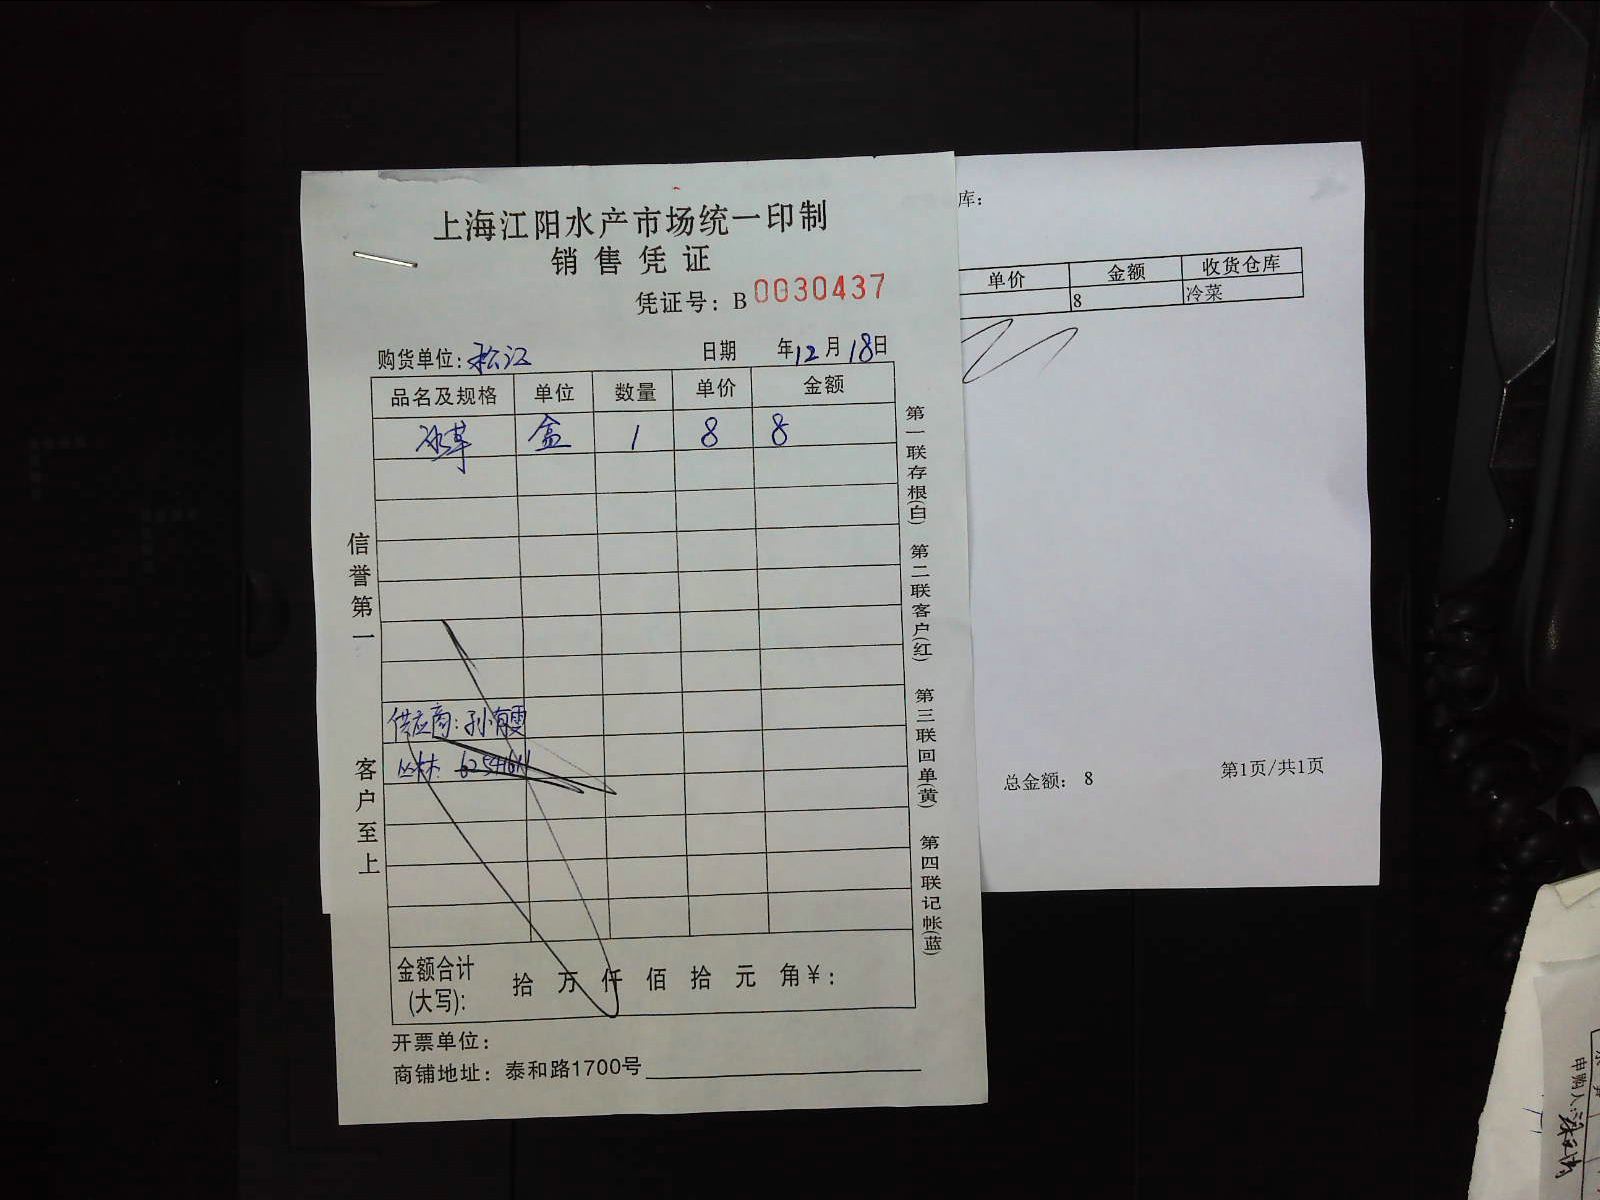 上海江阳水产市场统一印制
销售凭证
凭证号：B 0030437
购货单位：松江 日期 年12月18日
品名及规格 单位 数量 单价 金额
冰草 盒 1 8 8
供应商：孙有雯
丛林
信誉第一 客户至上
第一联存根(白) 第二联客户(红) 第三联回单(黄) 第四联记帐(蓝)
金额合计(大写)： 拾 万 仟 佰 拾 元 角 ¥：
开票单位：
商铺地址：泰和路1700号
库：
单价 金额 收货仓库
8 冷菜
总金额： 8 第1页/共1页
申购人：